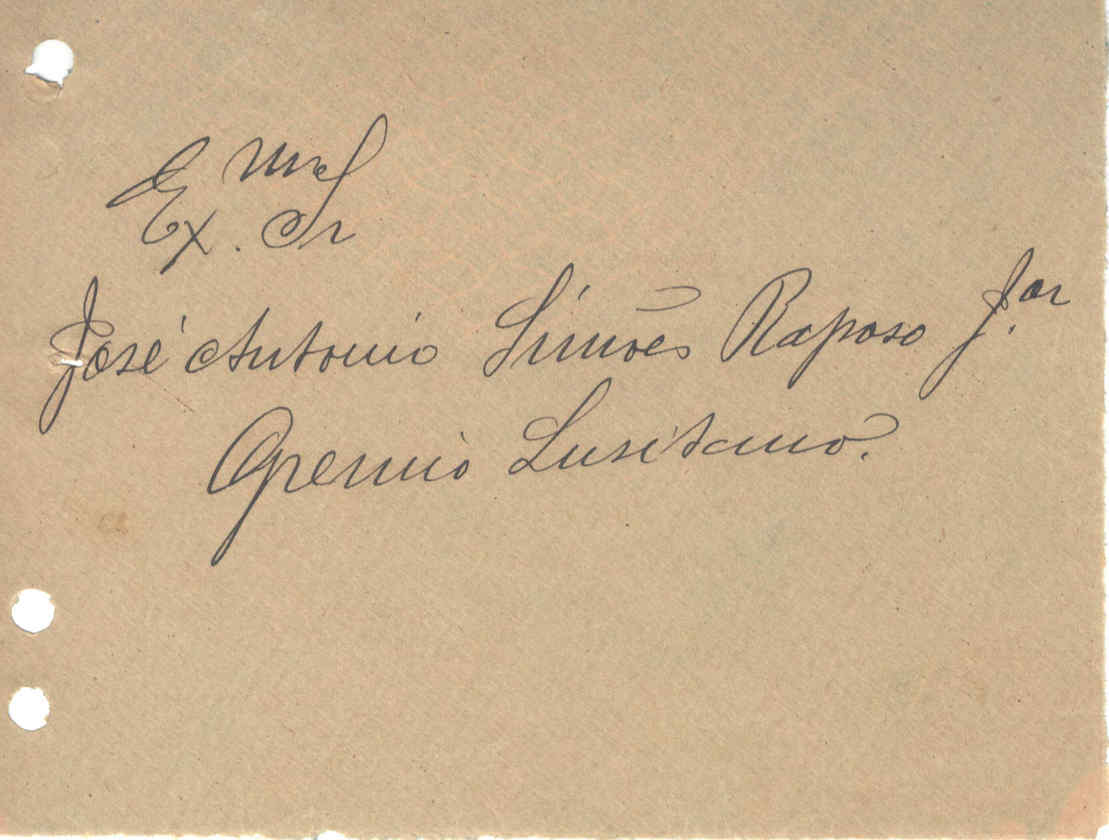 Ex.mo Sr
José Antonio Simões Raposo J.or
Gremio Lusitano.